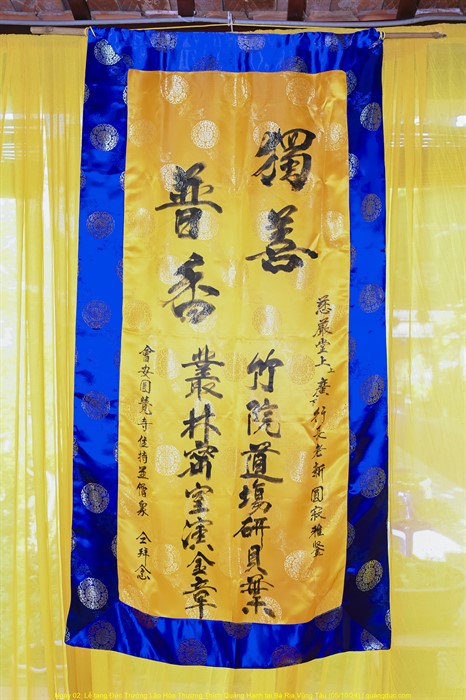 慈嚴堂上上廣下行長老新圓寂雅鑒
獨善
竹院道塲研貝葉
普香
叢林密室演金章
會安圓覺寺住持並僧眾 仝拜念
Ngày 02: Lễ tang Đức Trưởng Lão Hòa Thượng Thích Quảng Hạnh tại Bà Rịa Vũng Tàu | quangduc.com